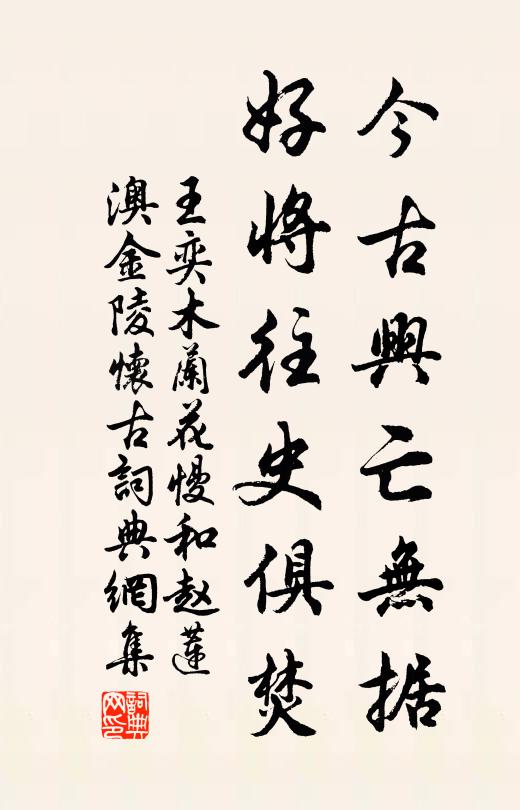 今古興亡無据
好將往史俱焚
王奕木蘭花慢和赵蓮
澳金陵懷古詞典網集
詞典网印